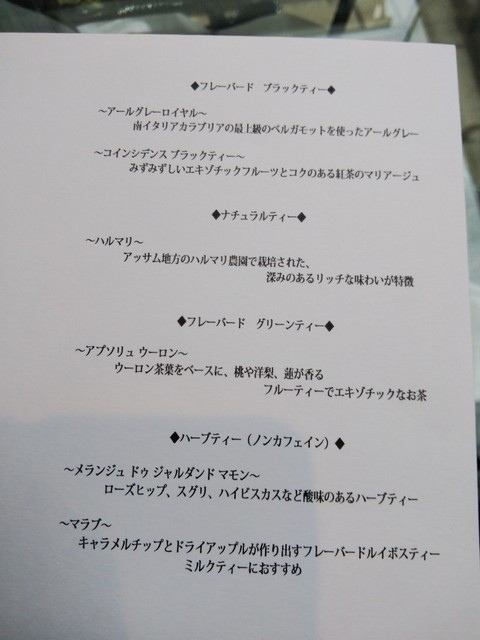 ◆フレーバード　ブラックティー◆
～アールグレーロイヤル～
南イタリアカラブリアの最上級のベルガモットを使ったアールグレー
～コインシデンス ブラックティー～
みずみずしいエキゾチックフルーツとコクのある紅茶のマリアージュ
◆ナチュラルティー◆
～ハルマリ～
アッサム地方のハルマリ農園で栽培された、
深みのあるリッチな味わいが特徴
◆フレーバード　グリーンティー◆
～アプソリュ ウーロン～
ウーロン茶葉をベースに、桃や洋梨、蓮が香る
フルーティーでエキゾチックなお茶
◆ハーブティー（ノンカフェイン）◆
～メランジュ ドゥ ジャルダンド マモン～
ローズヒップ、スグリ、ハイビスカスなど酸味のあるハーブティー
～マラブ～
キャラメルチップとドライアップルが作り出すフレーバードルイボスティー
ミルクティーにおすすめ